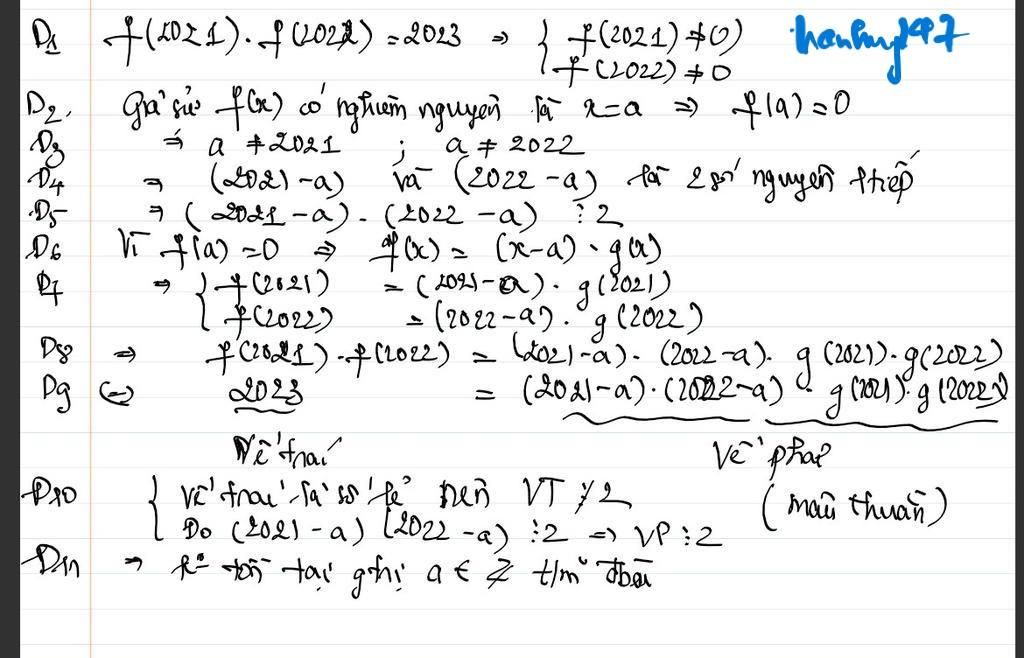 D1 f(2021).f(2022) = 2023 ⇒ { f(2021) ≠ 0) hanhmy1997
f(2022) ≠ 0
D2. Giả sử f(x) có nghiệm nguyên là x=a ⇒ f(a) = 0
D3 ⇒ a ≠ 2021 ; a ≠ 2022
D4 ⇒ (2021-a) và (2022-a) là 2 số nguyên tiếp
D5 ⇒ (2021-a).(2022-a) ⋮ 2
D6 Vì f(a) = 0 ⇒ f(x) = (x-a).g(x)
D7 ⇒ { f(2021) = (2021-a).g(2021)
f(2022) = (2022-a).g(2022)
D8 ⇒ f(2021).f(2022) = (2021-a).(2022-a).g(2021).g(2022)
D9 (=) 2023 = (2021-a).(2022-a).g(2021).g(2022)
Vế trái Vế phải
D10 { Vế trái là số lẻ nên VT ⋮̸ 2 (mâu thuẫn)
Do (2021-a)(2022-a) ⋮ 2 => VP ⋮ 2
D11 ⇒ k° tồn tại gtrị a ∈ Z t/m đbài